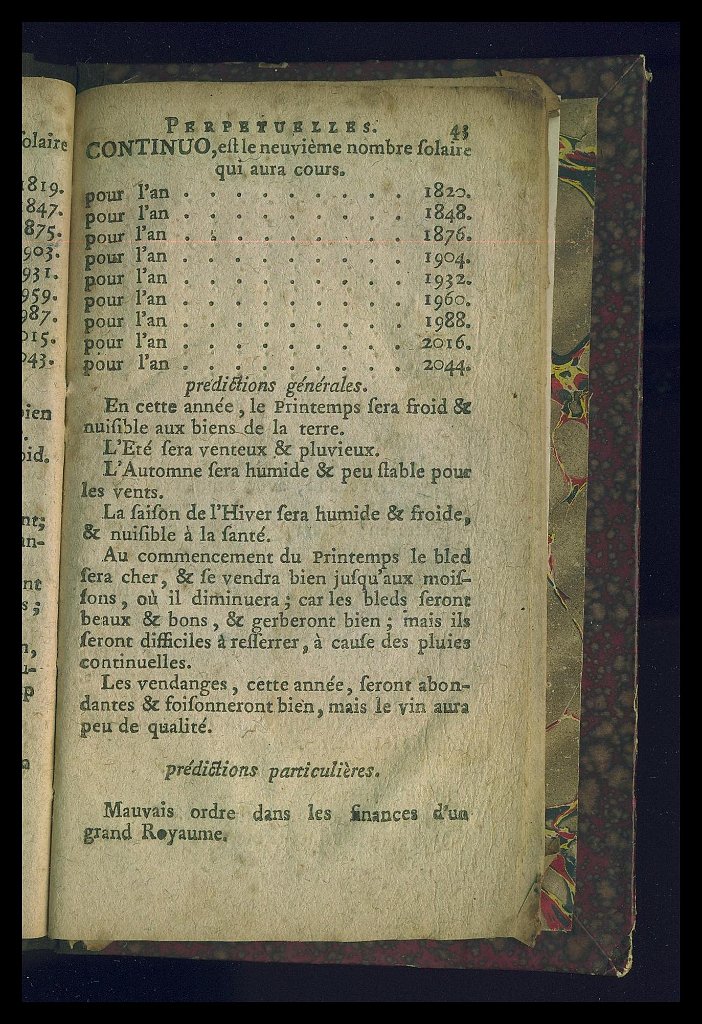 PERPETUELLES. 43
CONTINUO, eſt le neuvième nombre ſolaire
qui aura cours.
pour l'an . . . . . . . . . 1820.
pour l'an . . . . . . . . . 1848.
pour l'an . . . . . . . . . 1876.
pour l'an . . . . . . . . . 1904.
pour l'an . . . . . . . . . 1932.
pour l'an . . . . . . . . . 1960.
pour l'an . . . . . . . . . 1988.
pour l'an . . . . . . . . . 2016.
pour l'an . . . . . . . . . 2044.
prédictions générales.
En cette année, le Printemps ſera froid &
nuiſible aux biens de la terre.
L'Eté ſera venteux & pluvieux.
L'Automne ſera humide & peu ſtable pour
les vents.
La ſaiſon de l'Hiver ſera humide & froide,
& nuiſible à la ſanté.
Au commencement du Printemps le bled
ſera cher, & ſe vendra bien juſqu'aux moiſ-
ſons, où il diminuera; car les bleds ſeront
beaux & bons, & gerberont bien; mais ils
ſeront difficiles à reſſerrer, à cauſe des pluies
continuelles.
Les vendanges, cette année, ſeront abon-
dantes & foiſonneront bien, mais le vin aura
peu de qualité.
prédictions particulières.
Mauvais ordre dans les finances d'un
grand Royaume.
ſolaire
1819.
847.
875.
903.
931.
959.
987.
015.
043.